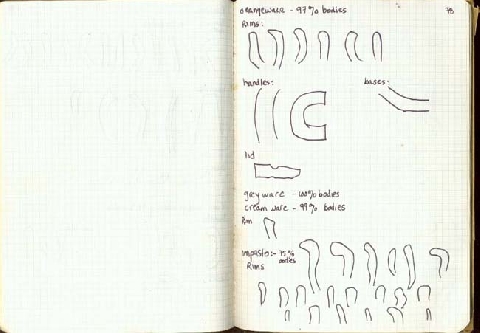 orangeware - 97% bodies
Rims:
handles:
bases:
lid
grey ware - 100% bodies
cream ware - 99% bodies
Rim
impasto:- 95% bodies
Rims